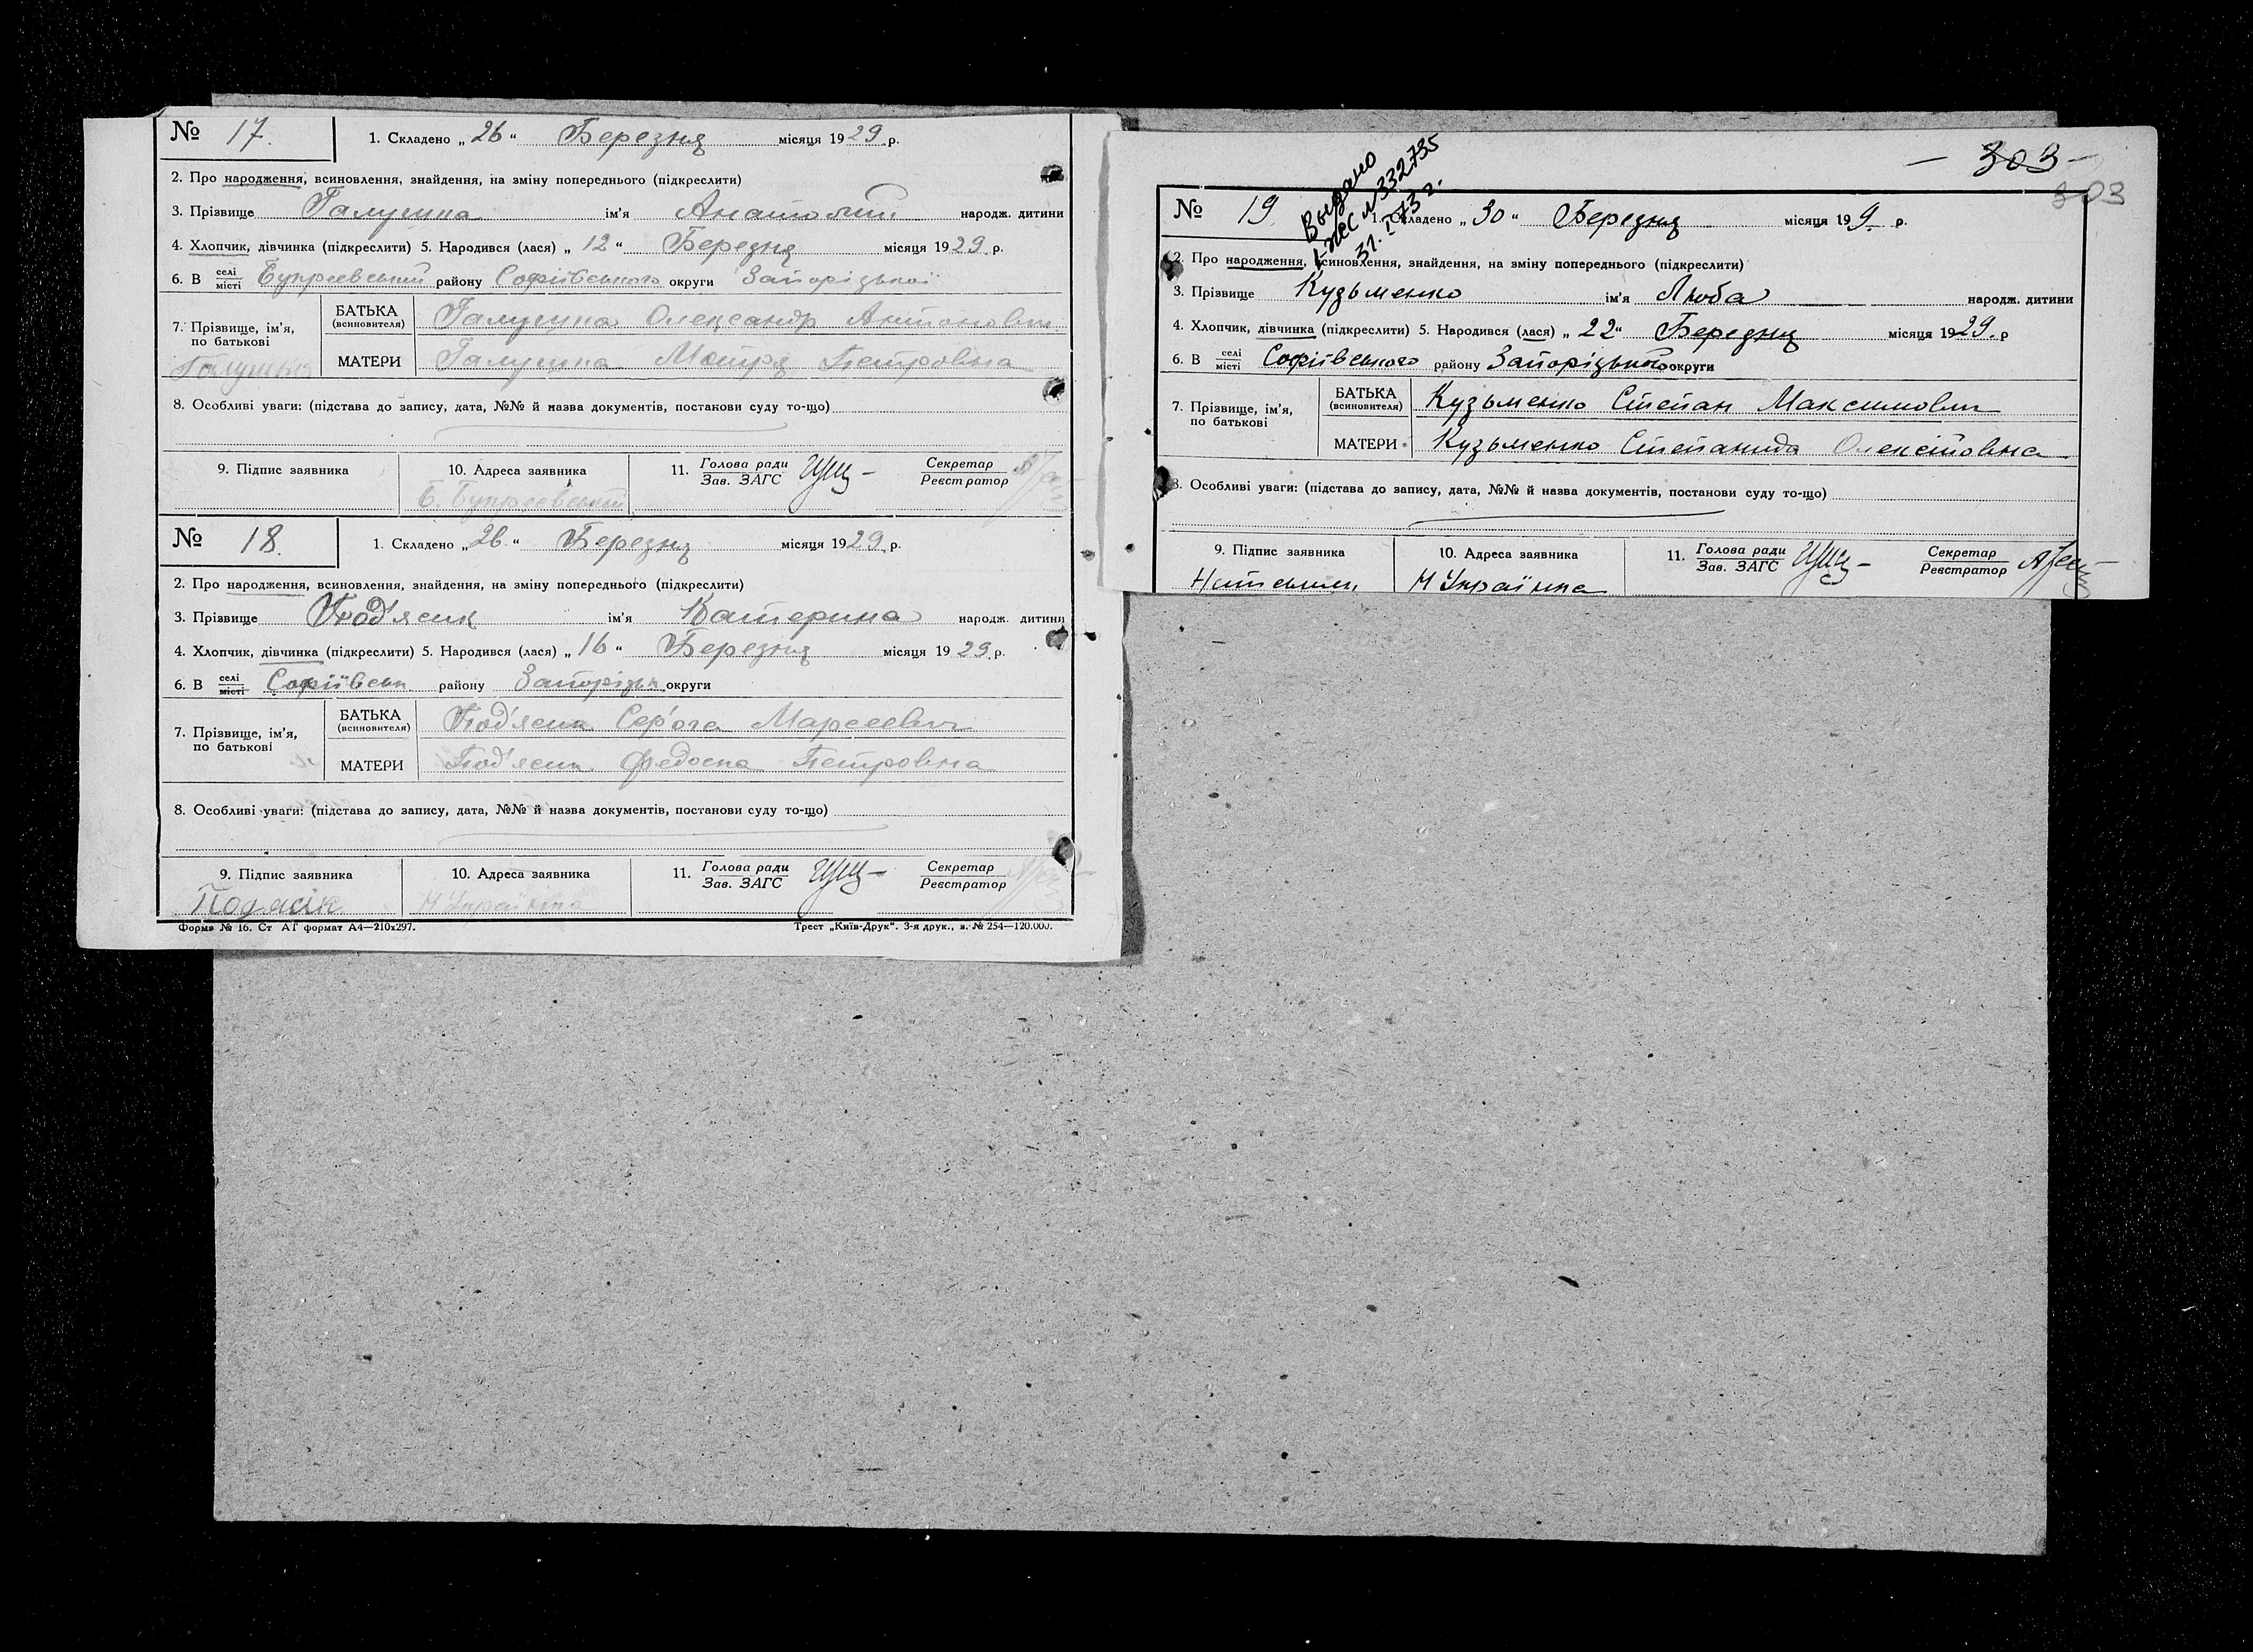 № 17. 1. Складено „26“ Березня місяця 1929 р.
2. Про народження, всиновлення, знайдення, на зміну попереднього (підкреслити)
3. Прізвище Галушка ім'я Анатолий народж. дитини
4. Хлопчик, дівчинка (підкреслити) 5. Народився (лася) „12“ Березня місяця 1929 р.
6. В селі місті району Софіївського округи Запорізької
7. Прізвище, ім'я, по батькові
БАТЬКА (всиновителя) Галушка Олександр Антонович
МАТЕРИ Галушка Мотря Петровна
8. Особливі уваги: (підстава до запису, дата, №№ й назва документів, постанови суду то-що)
9. Підпис заявника 10. Адреса заявника 11. Голова ради Зав. ЗАГС Секретар Реєстратор
№ 18. 1. Складено „26“ Березня місяця 1929 р.
2. Про народження, всиновлення, знайдення, на зміну попереднього (підкреслити)
3. Прізвище Под'ясик ім'я Катерина народж. дитини
4. Хлопчик, дівчинка (підкреслити) 5. Народився (лася) „16“ Березня місяця 1929 р.
6. В селі місті Софіївськ. району Запорізьк. округи
7. Прізвище, ім'я, по батькові
БАТЬКА (всиновителя) Под'ясик
МАТЕРИ Под'ясик Федоска Петровна
8. Особливі уваги: (підстава до запису, дата, №№ й назва документів, постанови суду то-що)
9. Підпис заявника 10. Адреса заявника 11. Голова ради Зав. ЗАГС Секретар Реєстратор
Подясік Н Українка
Форма № 16. Ст АГ формат А4—210х297. Трест „Київ-Друк“. 3-я друк., з. № 254—120.000.
— 303 —
303
Выдано
№332735
№ 19 1. Складено „30“ Березня місяця 199. р.
2. Про народження, всиновлення, знайдення, на зміну попереднього (підкреслити)
3. Прізвище Кузьменко ім'я Люба народж. дитини
4. Хлопчик, дівчинка (підкреслити) 5. Народився (лася) „22“ Березня місяця 1929. р
6. В селі місті Софіївського району Запорізького округи
7. Прізвище, ім'я, по батькові
БАТЬКА (всиновителя) Кузьменко Степан Максимович
МАТЕРИ Кузьменко Степанида Олексіовна
8. Особливі уваги: (підстава до запису, дата, №№ й назва документів, постанови суду то-що)
9. Підпис заявника 10. Адреса заявника 11. Голова ради Зав. ЗАГС Секретар Реєстратор
Н Українка